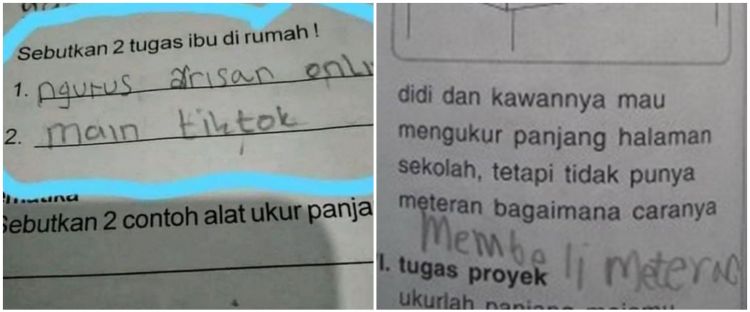 Sebutkan 2 tugas ibu di rumah !
1. ngurus arisan onli
2. main tiktok
Sebutkan 2 contoh alat ukur panja
didi dan kawannya mau
mengukur panjang halaman
sekolah, tetapi tidak punya
meteran bagaimana caranya
Membeli meteran
I. tugas proyek
ukurlah